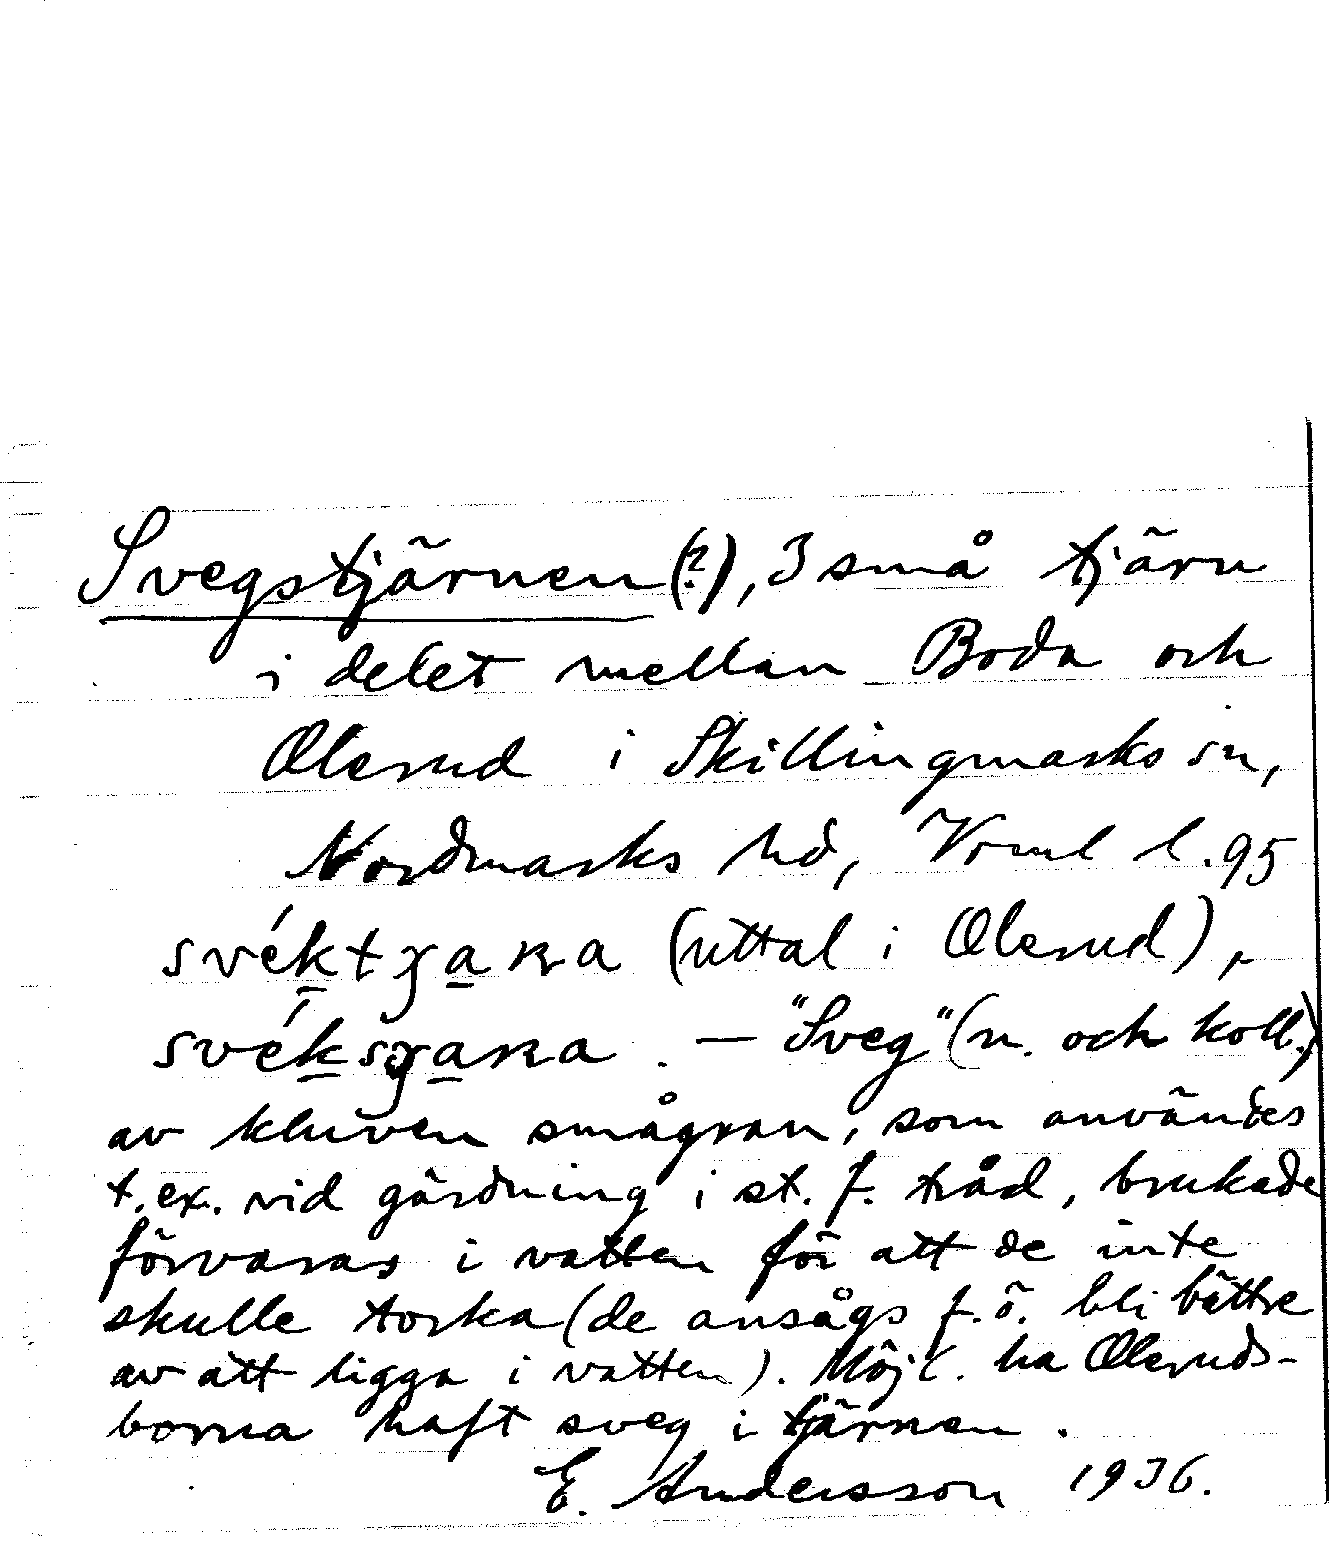 Svegstjärnen (?), 3 små tjärn
i delet mellan Boda och
Olerud i Skillingmarks sn,
Nordmarks hd, Vrml l. 95
(uttal i Olerud),
. — "Sveg" (n. och koll.)
av kluven smågran, som användes
t. ex. vid gärdning i st. f. tråd, brukade
förvaras i vatten för att de inte
skulle torka (de ansågs f. ö. bli bättre
av att ligga i vatten). Möjl. ha Oleruds-
borna haft sveg i tjärnen.
E. Andersson 1936.